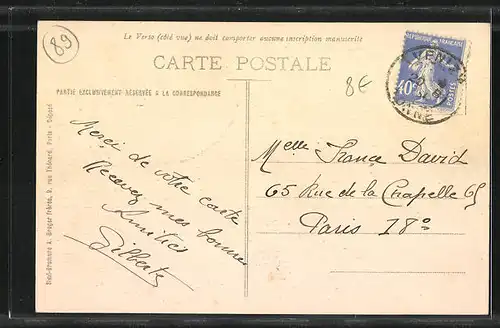 89
Le Verso (côté vue) ne doit comporter aucune inscription manuscrite
CARTE POSTALE
8€
PARTIE EXCLUSIVEMENT RÉSERVÉE A LA CORRESPONDANCE
RÉPUBLIQUE FRANÇAISE
40c
POSTES
Merci de votre carte
Recevez mes bonnes
Amitiés
Gilberte
Melle France David
65 Rue de la Chapelle 65
Paris 18°
A. Breger Frères, 9, rue Thénard, Paris - Déposé